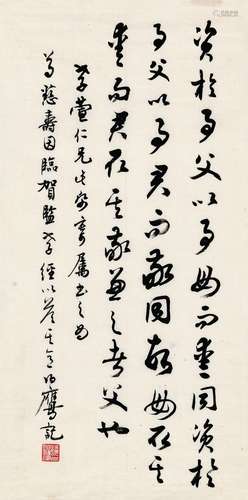 資於事父以事母而愛同資於
事父以事君而敬同故母取其
愛而君取其敬兼之者父也
孝萱仁兄寄屬書
尊慈壽因臨賀監孝經以答其意鷹記